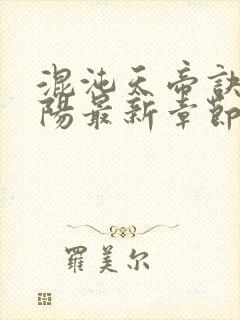 混沌天帝訣
陽最新章節
羅美尔